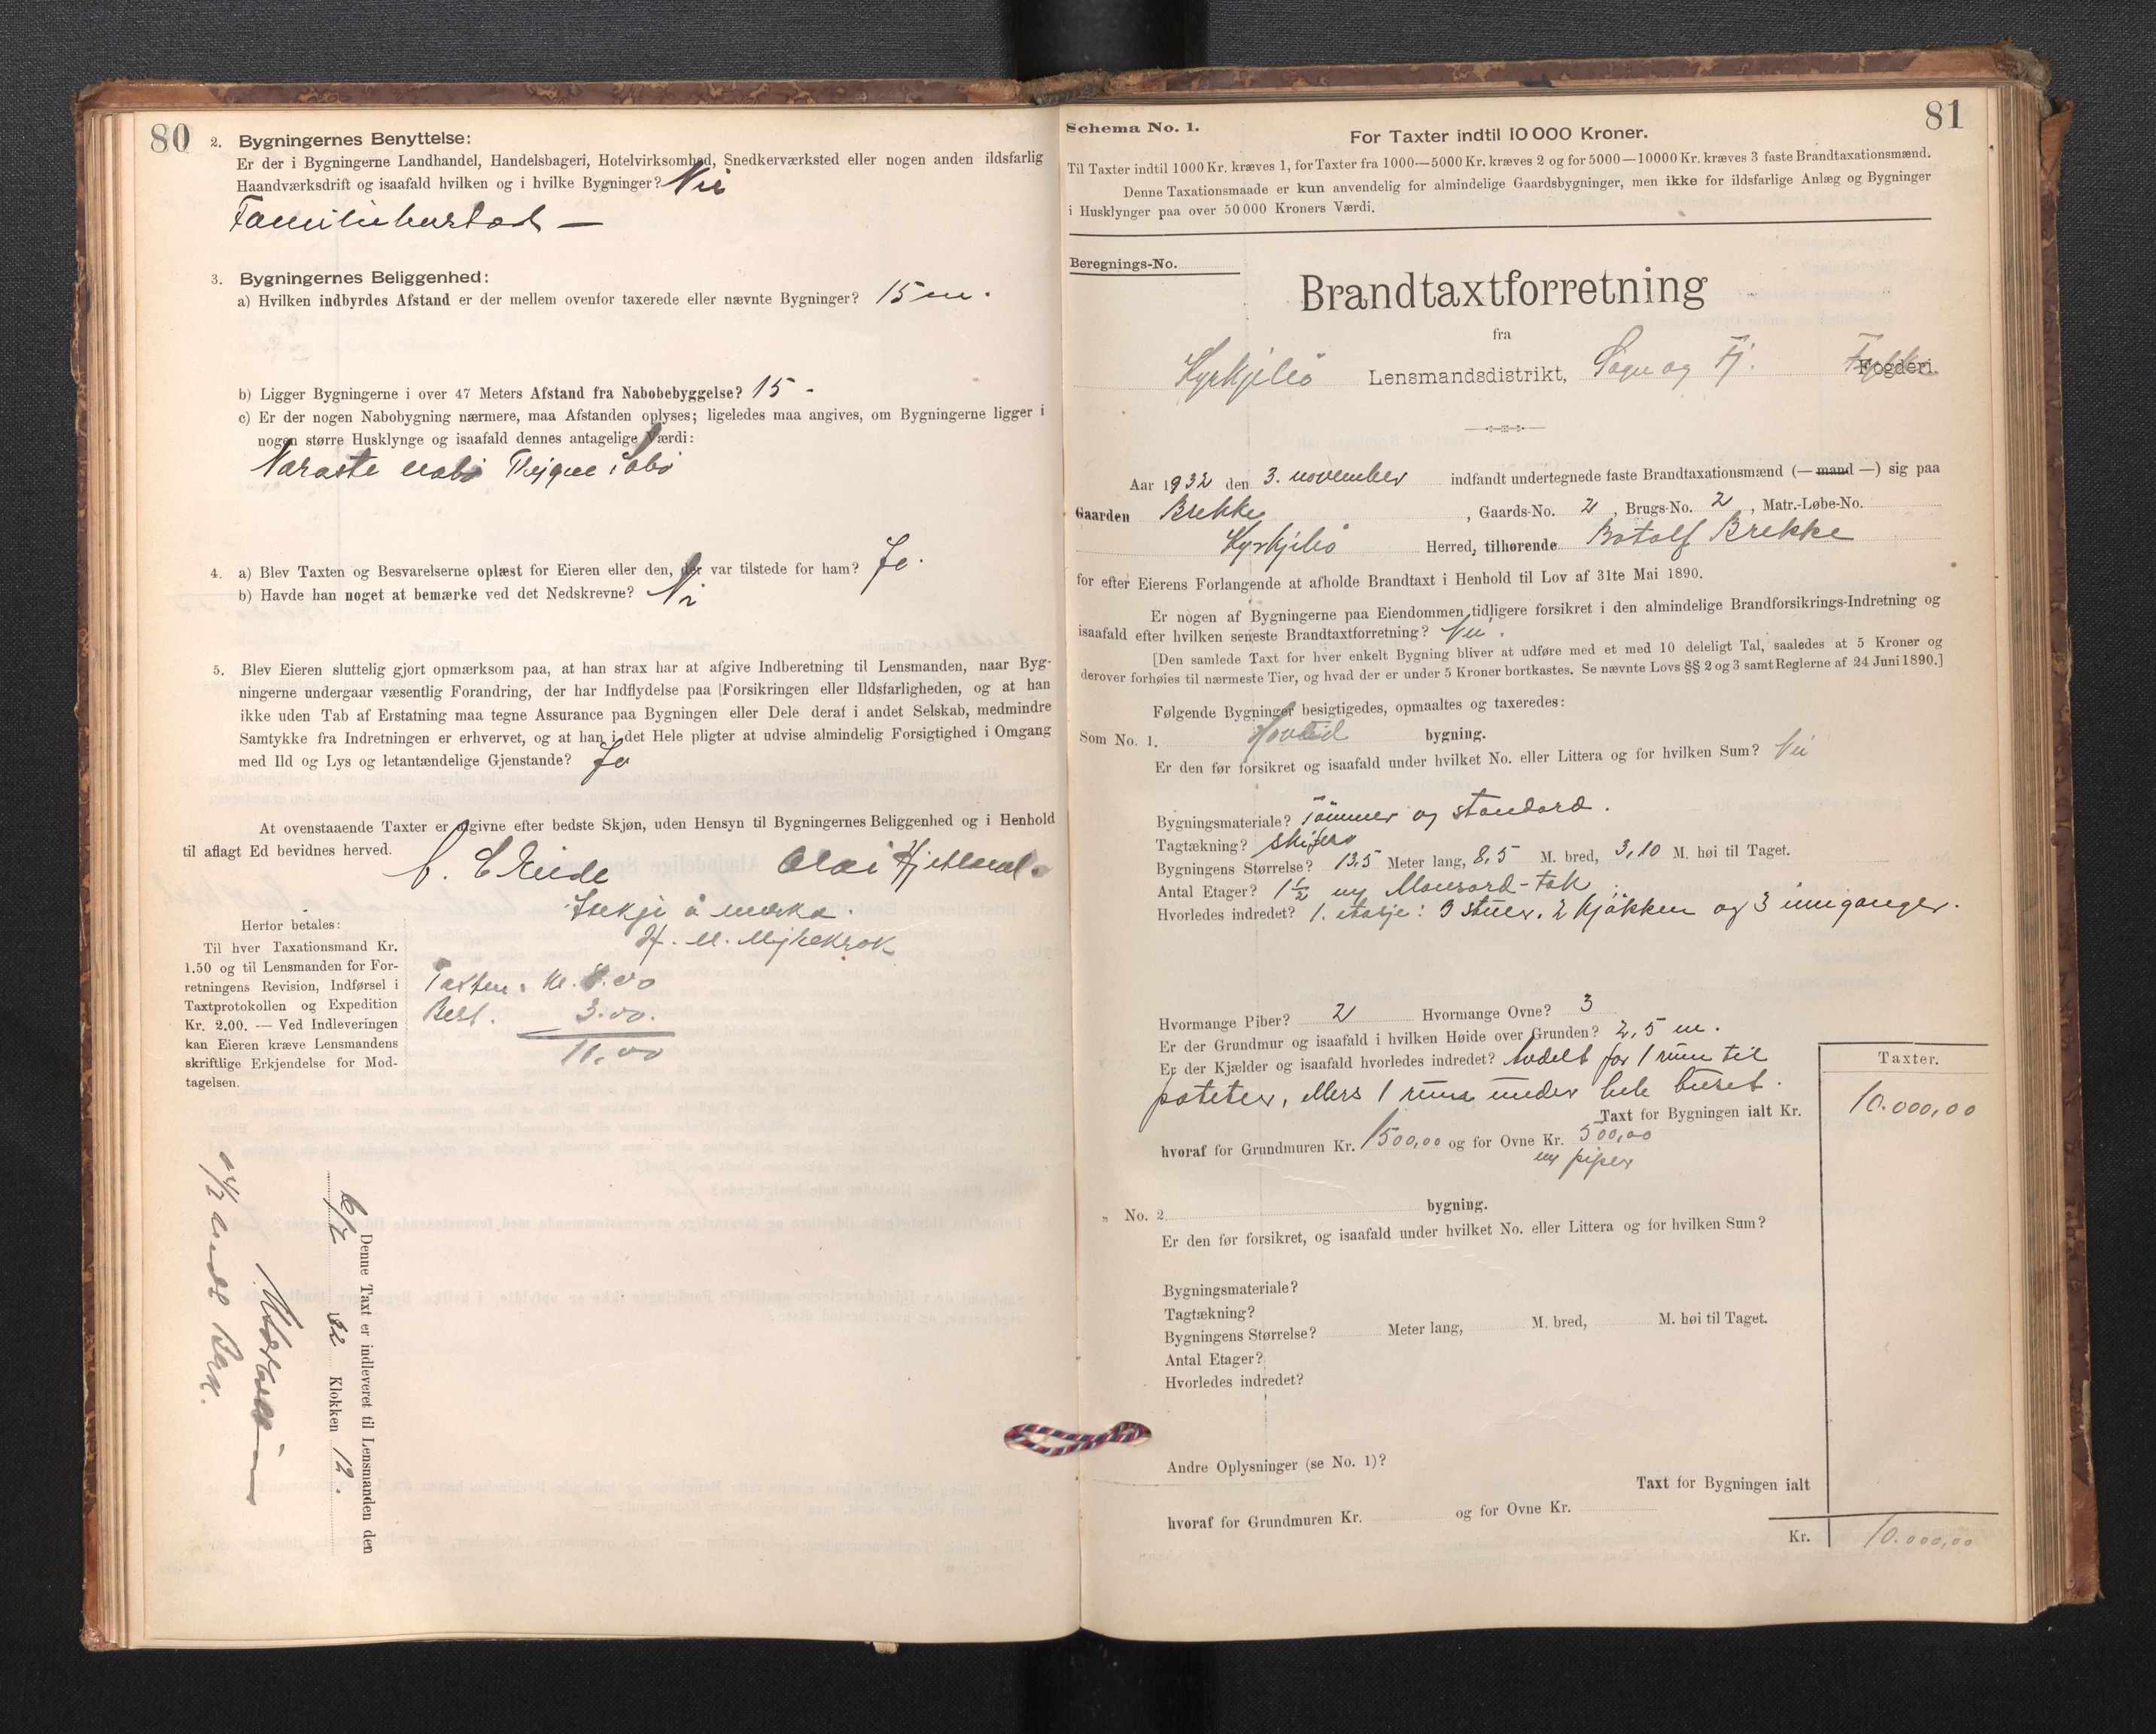 80
2. Bygningernes Benyttelse:
Er der i Bygningerne Landhandel, Handelsbageri, Hotelvirksomhed, Snedkerværksted eller nogen anden ildsfarlig
Haandværksdrift og isaafald hvilken og i hvilke Bygninger? Nei
Familiebustad —
3. Bygningernes Beliggenhed:
a) Hvilken indbyrdes Afstand er der mellem ovenfor taxerede eller nævnte Bygninger? 15 m.
b) Ligger Bygningerne i over 47 Meters Afstand fra Nabobebyggelse? 15 -
c) Er der nogen Nabobygning nærmere, maa Afstanden oplyses; ligeledes maa angives, om Bygningerne ligger i
nogen større Husklynge og isaafald dennes antagelige Værdi:
Næraste nabo
4. a) Blev Taxten og Besvarelserne oplæst for Eieren eller den, der var tilstede for ham? Jo.
b) Havde han noget at bemærke ved det Nedskrevne? Nei
5. Blev Eieren sluttelig gjort opmærksom paa, at han strax har at afgive Indberetning til Lensmanden, naar Byg-
ningerne undergaar væsentlig Forandring, der har Indflydelse paa Forsikringen eller Ildsfarligheden, og at han
ikke uden Tab af Erstatning maa tegne Assurance paa Bygningen eller Dele deraf i andet Selskab, medmindre
Samtykke fra Indretningen er erhvervet, og at han i det Hele pligter at udvise almindelig Forsigtighed i Omgang
med Ild og Lys og letantændelige Gjenstande? Jo
At ovenstaaende Taxter er afgivne efter bedste Skjøn, uden Hensyn til Bygningernes Beliggenhed og i Henhold
til aflagt Ed bevidnes herved.
Olai Hjetland
Ikkje å merka.
Herfor betales:
Til hver Taxationsmand Kr.
1.50 og til Lensmanden for For-
retningens Revision, Indførsel i
Taxtprotokollen og Expedition
Kr. 2.00. — Ved Indleveringen
kan Eieren kræve Lensmandens
skriftlige Erkjendelse for Mod-
tagelsen.
Taxten. Kr. 8.00
Best. 3.00.
11,00
Denne Taxt er indleveret til Lensmanden den
32 Klokken 12.
81
Schema No. 1.
For Taxter indtil 10 000 Kroner.
Til Taxter indtil 1000 Kr. kræves 1, for Taxter fra 1000—5000 Kr. kræves 2 og for 5000—10000 Kr. kræves 3 faste Brandtaxationsmænd.
Denne Taxationsmaade er kun anvendelig for almindelige Gaardsbygninger, men ikke for ildsfarlige Anlæg og Bygninger
i Husklynger paa over 50 000 Kroners Værdi.
Beregnings-No.
Brandtaxtforretning
fra
Kyrkjebø Lensmandsdistrikt, Sogn og Fj. Fylke Fogderi.
Aar 1932 den 3. november indfandt undertegnede faste Brandtaxationsmænd (— mand —) sig paa
Gaarden Brekke, Gaards-No. 2, Brugs-No. 2, Matr.-Løbe-No.
Kyrkjebø Herred, tilhørende Botolf Brekke
for efter Eierens Forlangende at afholde Brandtaxt i Henhold til Lov af 31te Mai 1890.
Er nogen af Bygningerne paa Eiendommen tidligere forsikret i den almindelige Brandforsikrings-Indretning og
isaafald efter hvilken seneste Brandtaxtforretning? Nei.
[Den samlede Taxt for hver enkelt Bygning bliver at udføre med et med 10 deleligt Tal, saaledes at 5 Kroner og
derover forhøies til nærmeste Tier, og hvad der er under 5 Kroner bortkastes. Se nævnte Lovs §§ 2 og 3 samt Reglerne af 24 Juni 1890.]
Følgende Bygninger besigtigedes, opmaaltes og taxeredes:
Som No. 1. bygning.
Er den før forsikret og isaafald under hvilket No. eller Littera og for hvilken Sum? Nei
Bygningsmateriale? Tømmer og standard.
Tagtækning? Skifer
Bygningens Størrelse? 13,5 Meter lang, 8,5 M. bred, 3,10 M. høi til Taget.
Antal Etager? 1 1/2 ny Mansard-tak
Hvorledes indredet? 1. etasje: 3 stuer, 2 kjøkken og 3 inngangar.
Hvormange Piber? 2 Hvormange Ovne? 3
Er der Grundmur og isaafald i hvilken Høide over Grunden? 2,5 m.
Er der Kjælder og isaafald hvorledes indredet? Avdelt for 1 rum til
poteter, ellers 1 rum under hele huset.
Taxter.
Taxt for Bygningen ialt Kr. 10.000,00
hvoraf for Grundmuren Kr. 1500,00 og for Ovne Kr. 500,00
og piper
„ No. 2 bygning.
Er den før forsikret, og isaafald under hvilket No. eller Littera og for hvilken Sum?
Bygningsmateriale?
Tagtækning?
Bygningens Størrelse? Meter lang, M. bred, M. høi til Taget.
Antal Etager?
Hvorledes indredet?
Andre Oplysninger (se No. 1)?
Taxt for Bygningen ialt
hvoraf for Grundmuren Kr. og for Ovne Kr.
Kr. 10.000,00